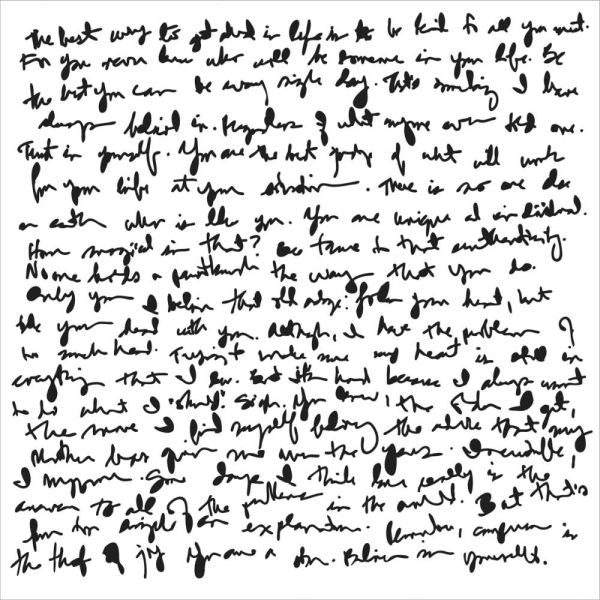 The best way to get ahead in life is to be kind to all you meet.
For you never know who will be someone in your life. Be
the best you can be every single day. It's something I have
always believed in. Regardless of what anyone ever told me.
Trust in yourself. You are the best judge of what will work
for you life at your situation. There is no one else
on earth who is like you. You are unique and individual.
How magical is that? Be true to that authenticity.
No one holds a paintbrush the way that you do.
Only you. I believe that old adage: follow your heart, but
take your head with you. Although, I have the problem of
too much head. Trying to make sure my heart is still in
everything that I do. But it's hard because I always want
to do what I "should". Sigh. You know, the older I get,
the more I find myself following the advice that my
Mother has given me over the years. Incredible,
I suppose. Some days I think love really is the
answer to all of the problems in the world. But that's
far too simple of an explanation. Remember, comparison is
the thief of joy. You are a star. Believe in yourself.